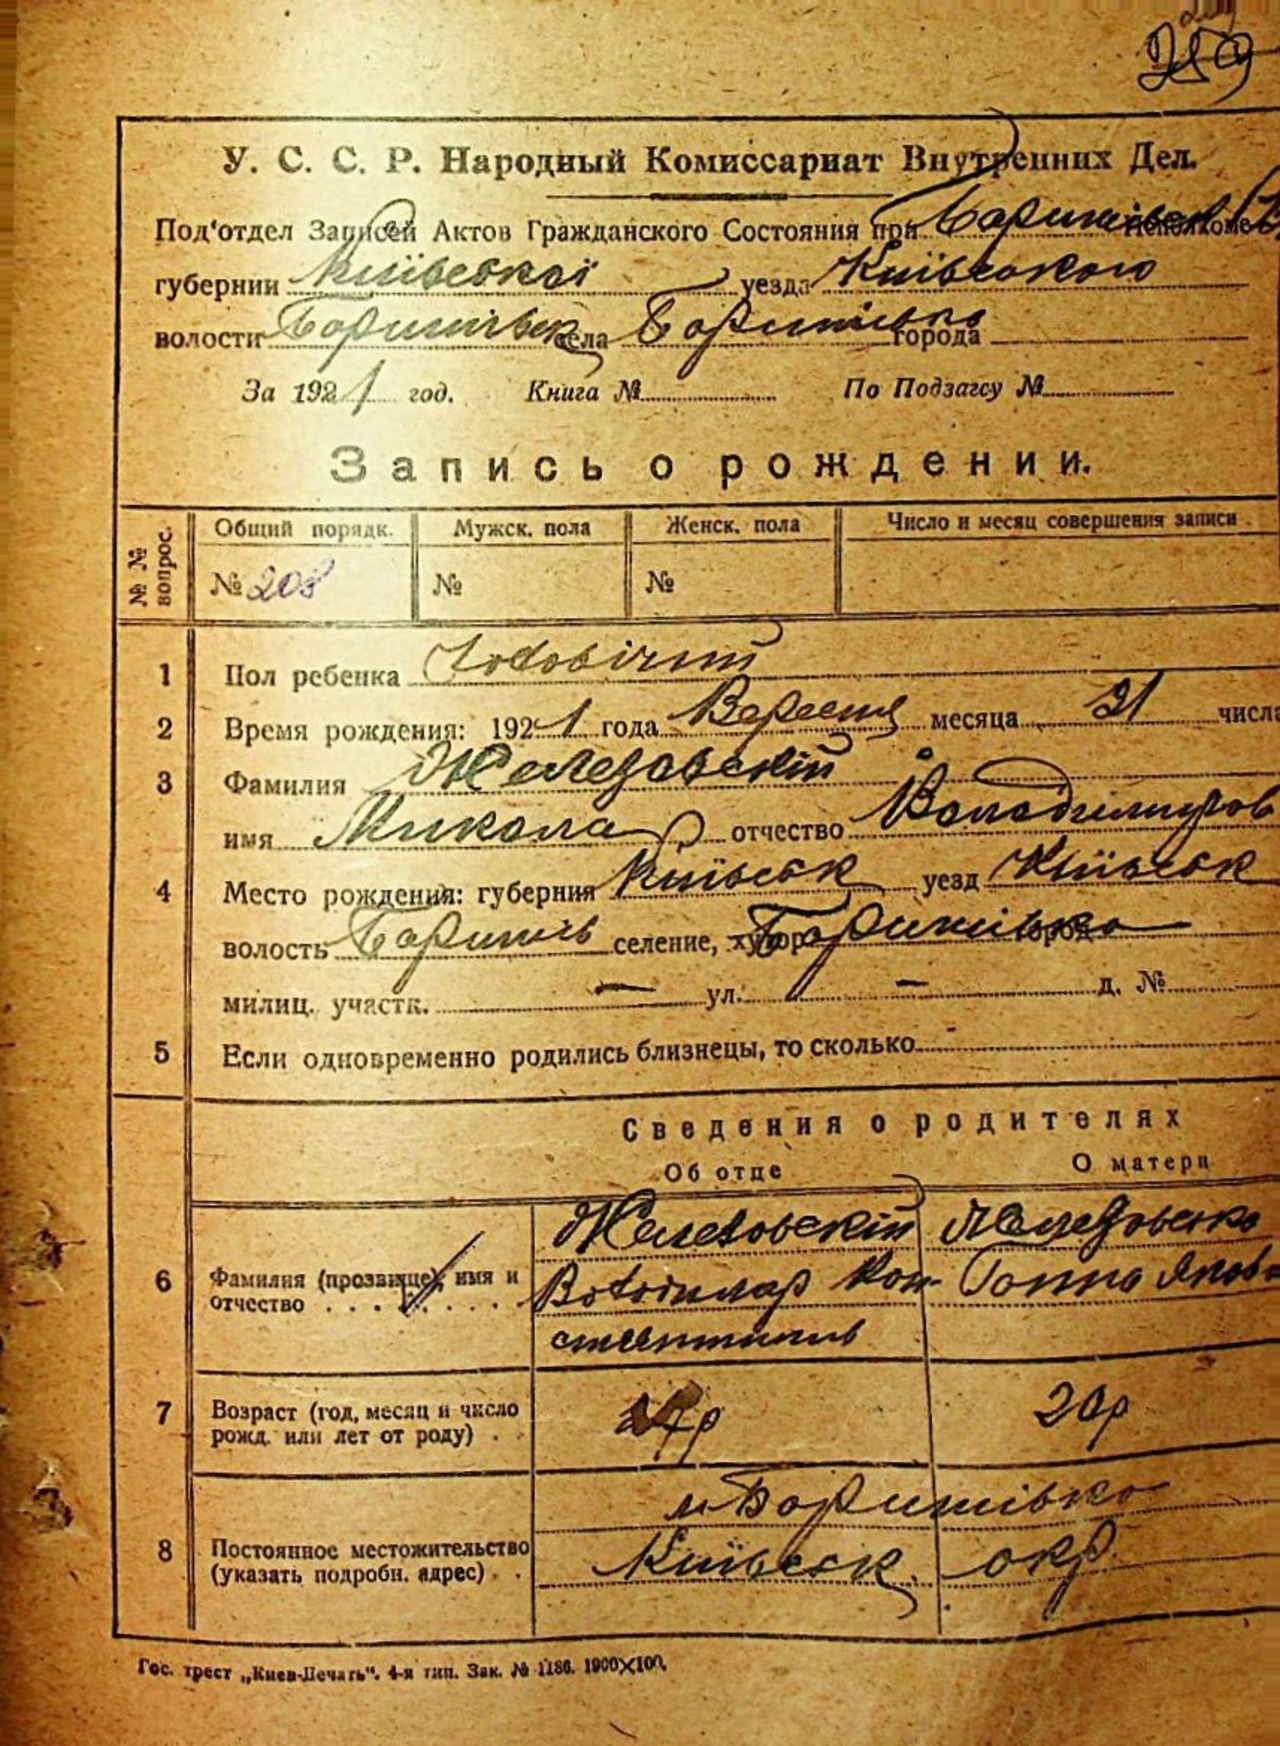 259
У. С. С. Р. Народный Комиссариат Внутренних Дел.
Под'отдел Записей Актов Гражданского Состояния при Боришпільск Исполкоме
губернии Київської уезда Київського
волости Боришпільск села Боришпілько города
За 1921 год. Книга № По Подзагсу №
Запись о рождении.
№№ вопрос. Общий порядк. Мужск. пола Женск. пола Число и месяц совершения записи
№ 208 № №
1 Пол ребенка Чоловічий
2 Время рождения: 1921 года Вересня месяца 21 числа
3 Фамилия Желєзовскій
имя Микола отчество Володимиров
4 Место рождения: губерния Київськ уезд Київськ
волость селение, хутор город
милиц. участк. — ул. — д. №
5 Если одновременно родились близнецы, то сколько
Сведения о родителях
Об отце О матери
6 Фамилия (прозвище), имя и отчество Желєзовскій Володимир Кон-стантинів
Ганна Яків-
7 Возраст (год, месяц и число рожд. или лет от роду) 20р
8 Постоянное местожительство (указать подробн. адрес)
Київськ. окр.
Гос. трест „Киев-Печать". 4-я тип. Зак. № 1186. 1900×100.